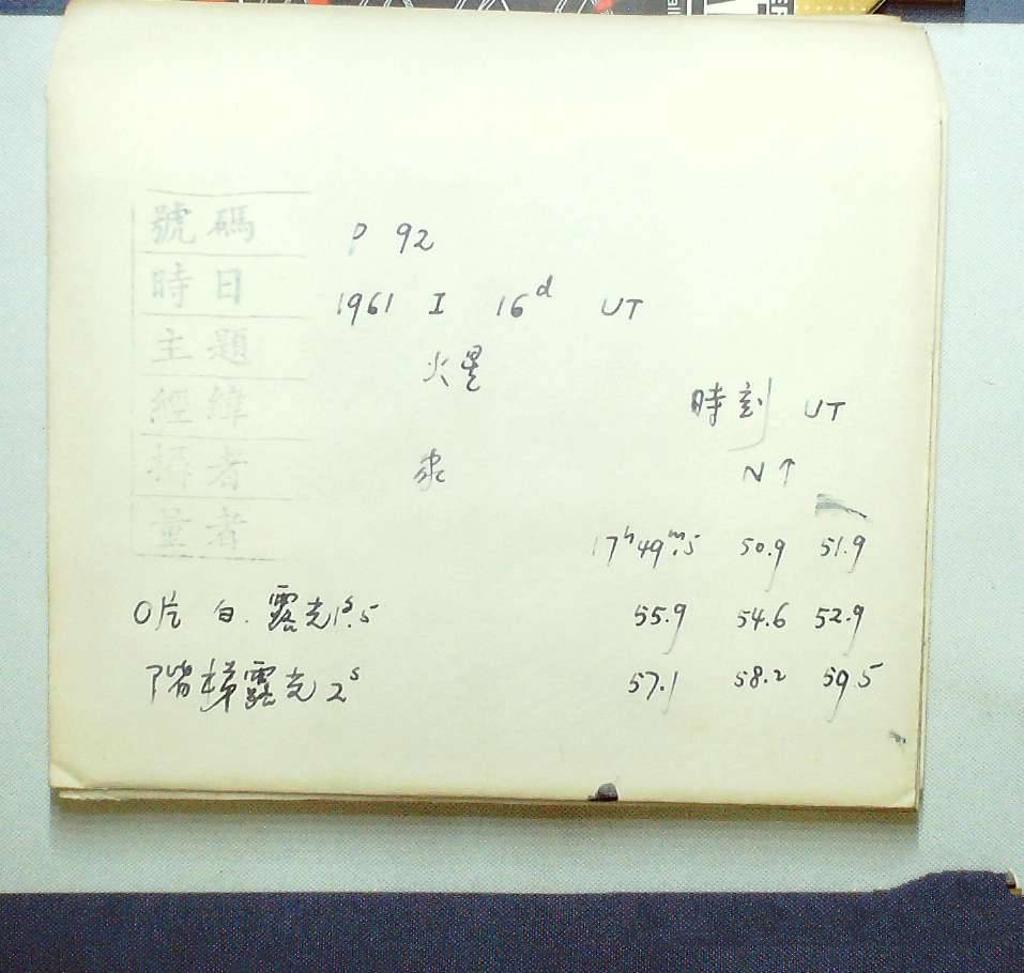 號碼 P 92
時日 1961 I 16d UT
主題 火星
經緯 時刻 UT
攝者 N↑
量者
17h49m.5 50.9 51.9
O片 白. 露光1s.5 55.9 54.6 52.9
階梯露光 2s 57.1 58.2 59.5